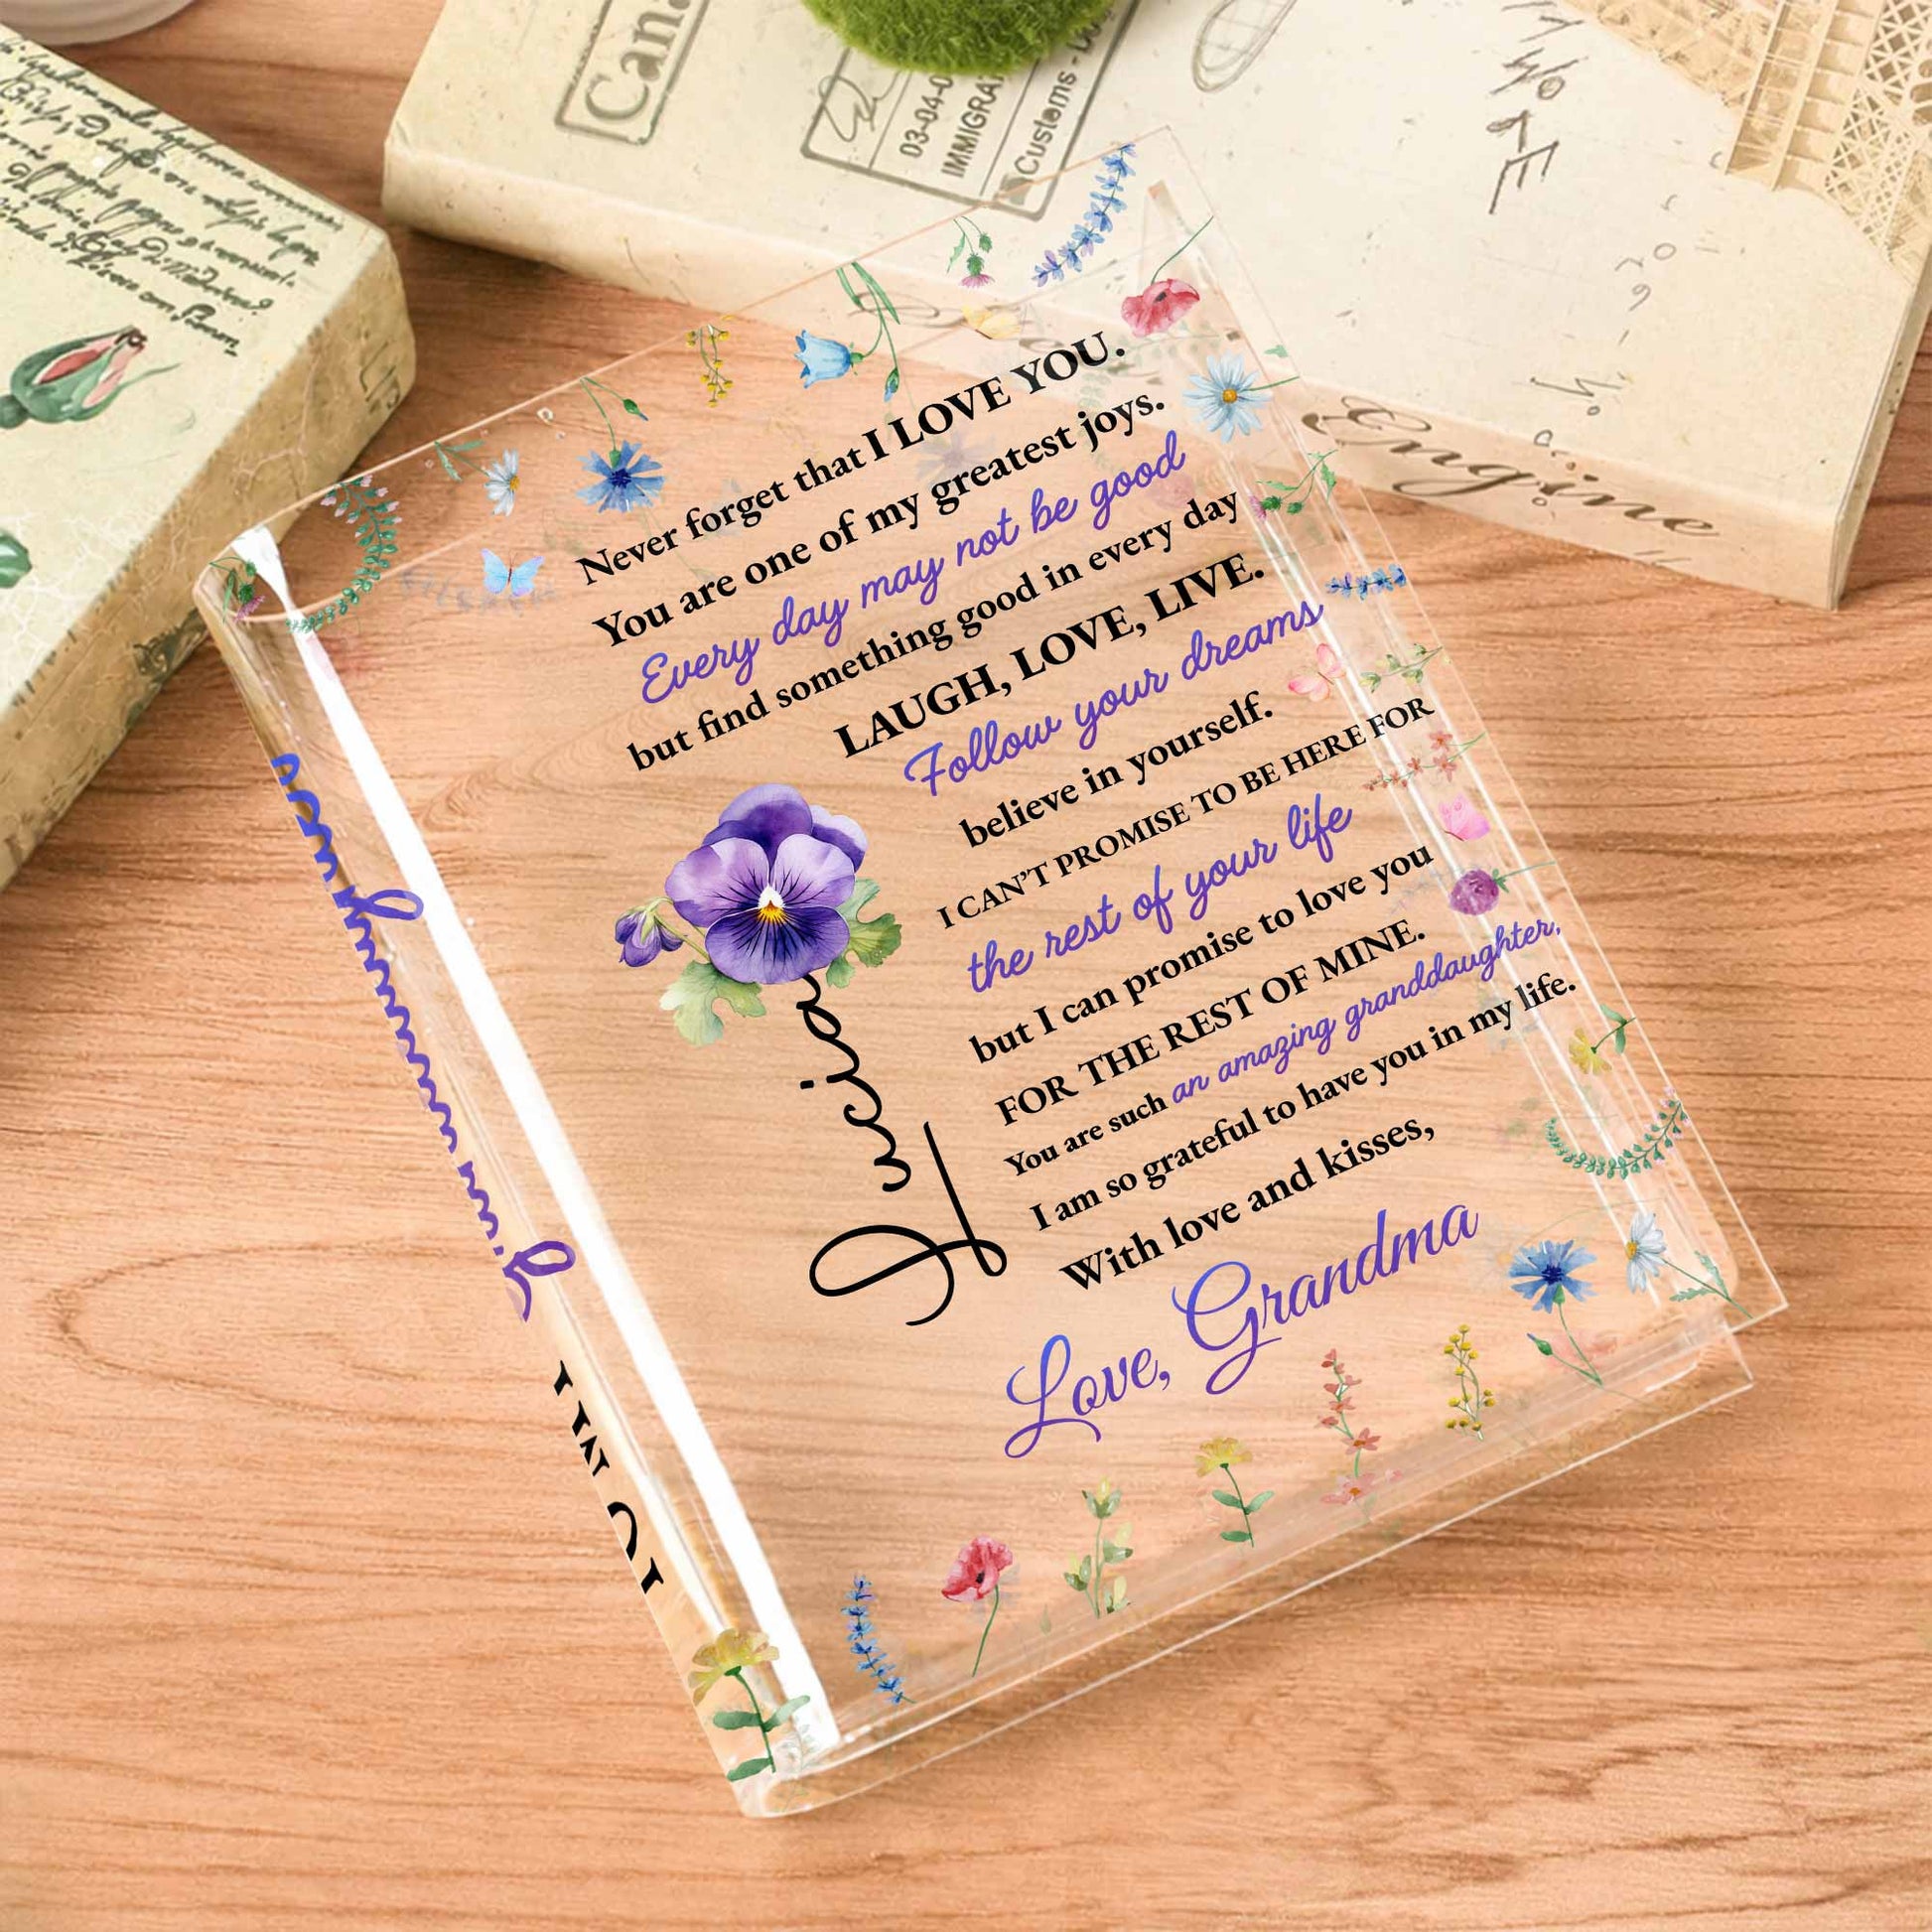 Never forget that I LOVE YOU.
You are one of my greatest joys.
Every day may not be good
but find something good in every day
LAUGH, LOVE, LIVE.
Follow your dreams
believe in yourself.
I CAN'T PROMISE TO BE HERE FOR
the rest of your life
but I can promise to love you
FOR THE REST OF MINE.
You are such an amazing granddaughter,
I am so grateful to have you in my life.
With love and kisses,
Love, Grandma
Lucia
03-04-0
IMMIGRA
Customs -
Engine